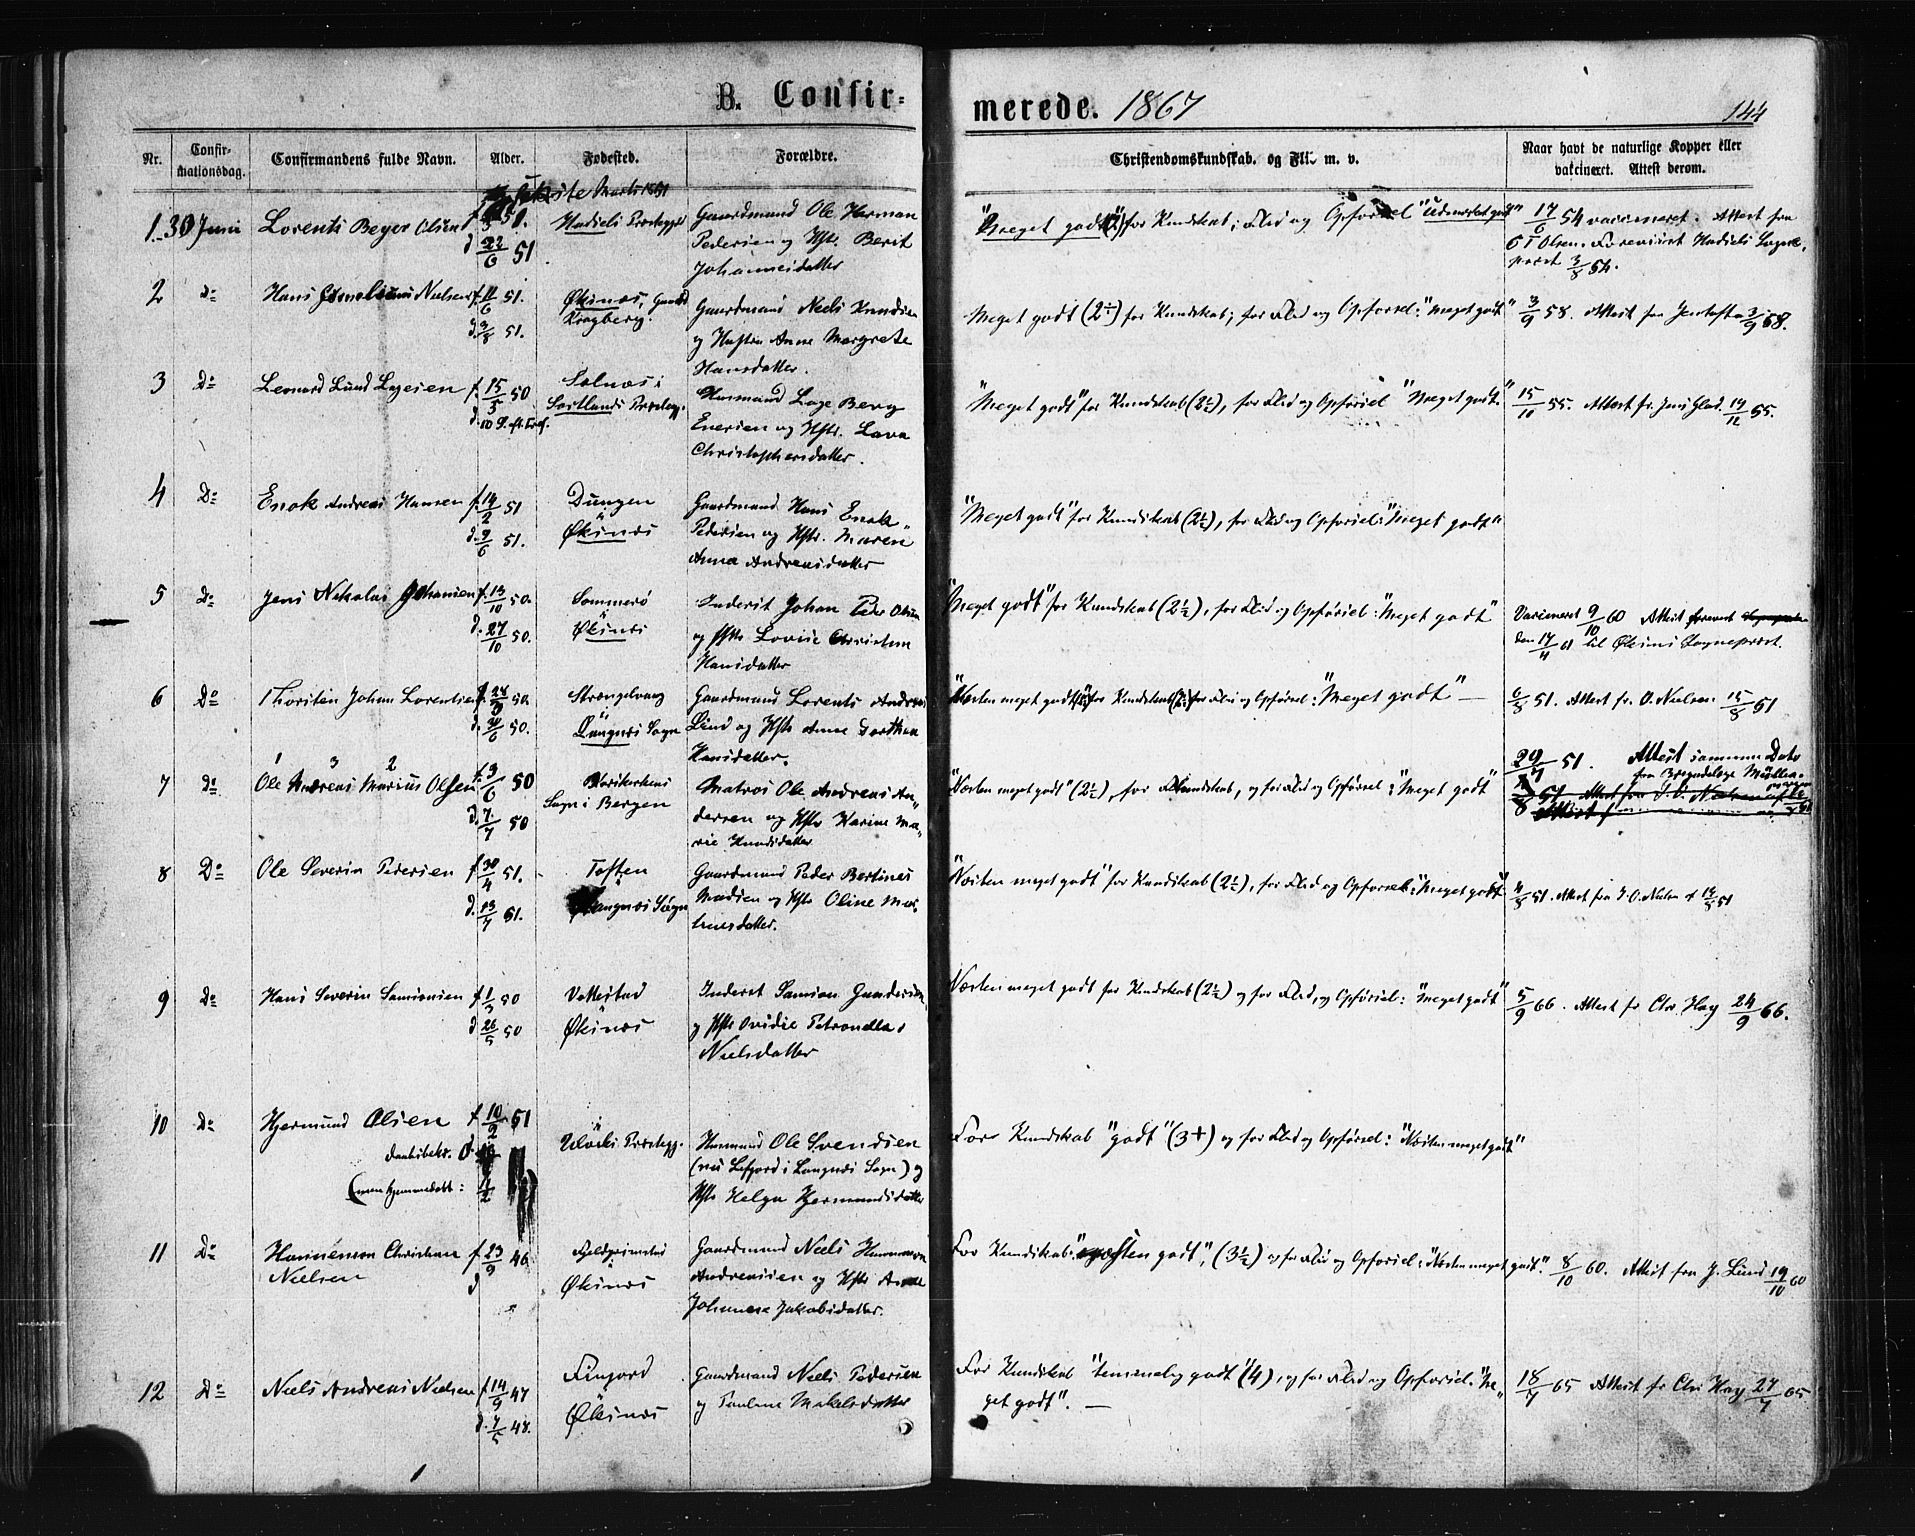 B. Confir-
merede. 1867
144
Nr.
Confir-
mationsdag.
Confirmandens fulde Navn.
Alder.
Fødested.
Forældre.
Christendomskundskab. og Flid m. v.
Naar havt de naturlige Kopper eller
vaccineret. Attest derom.
1. 30 Juni
Lorents Beyer Olsen
51.
d. 22/6 51
Hadsels Præstegj.
Gaardmand Ole Herman
Pedersen og Hstr. Berit
Johannesdatter
"Meget godt" (2) for Kundskab; Flid og Opførsel "Udmærket godt"
17/6 54 vaccineret. Attest fra
Olsen. Foreviist Hadsels Sogne-
præst 3/8 54.
2 Do
Hans Cornelius Nielsen
f. 11/6 51.
d. 3/8 51.
Øksnæs, Gaard
Kragberg.
Gaardmand Niels Knudsen
og Hustru Anne Margrete
Hansdatter.
Meget godt (2-) for Kundskab; for Flid og Opførsel: "Meget godt"
3/9 58. Attest fra Jentoft 3/9 58.
3 Do
Leonard Lund Lagesen
f. 15/5 50
Selnæs i
Sortlands Præsteg.
Huusmand Lage Berg
Enersen og Hstr. Lava
Christophersdatter.
"Meget godt" for Kundskab (2½), for Flid og Opførsel "Meget godt"
15/10 55. Attest fr. Jens Glad. 19/12 55.
4 Do
Enok Andreas Hansen
f. 14/2 51
d. 9/6 51.
Dungen
Øksnæs
Gaardmand Hans Enok
Pedersen og Hstr. Maren
Anna Andreasdatter
"Meget godt" for Kundskab (2½), for Flid og Opførsel: "Meget godt"
5 Do
Jens Nikolai Johansen
f. 13/10 50.
d. 27/10 50.
Sommerø
Øksnæs
Inderst Johan Peder Olsen
og Hstr Lovise Christine
Hansdatter
"Meget godt" for Kundskab (2½), for Flid og Opførsel: "Meget godt"
Vaccineret 9/10 60 Attest forevist
den 17/4 61 til Øksnæs Sognepræst.
6 Do
Thorstein Johan Lorentsen
50.
d. 30/6 50.
Strengelvaag
Langnæs Sogn
Gaardmand Lorents Andreas
Lind og Hstr Anne Dorthea
Hansdatter.
Næsten meget godt for Kundskab for Flid og Opførsel: "Meget godt" —
6/8 51. Attest fr. O. Nielsen 15/8 51
7 Do
Ole Andreas Marius Olsen
1 3 2
f. 3/6 50
d. 7/7 50
Korskirkens
Sogn i Bergen
Matros Ole Andreas An-
dersen og Hstr Karine Ma-
rie Knudsdatter
"Næsten meget godt" (2½), for Kundskab, og for Flid og Opførsel: "Meget godt"
29/7 51. Attest samme Dato
8 Do
Ole Severin Pedersen
f. 30/4 51.
d. 13/7 51.
Toften
Langnæs Sogn
Gaardmand Peder Bertinus
Madsen og Hstr Oline Mar-
tinusdatter.
"Næsten meget godt" for Kundskab (2½), for Flid og Opførsel: "Meget godt"
4/8 51. Attest fra J. O. Nielsen af 14/8 51
9 Do
Hans Severin Samsonsen
50
d. 26/5 50
Vottestad
Øksnæs
Inderst Samson Gundersen
og Hstr Ovidie Petronella
Nielsdatter
Næsten meget godt for Kundskab (2½) og for Flid og Opførsel: "Meget godt"
5/9 66. Attest fr Chr. Hay 24/9 66.
10 Do
Hjermund Olsen
f. 10/2 51
daabsbekr. d.
(men hjemmedøbt:
Ulviks Præstegj.
Huusmand Ole Svendsen
(nu Lifjord i Langnæs Sogn) og
Hstr Helga Hjermundsdatter
For Kundskab "godt" (3+) og for Flid og Opførsel: "Næsten meget godt"
11 Do
Hannemon Christian
Nielsen
f. 23/9 46
d
Øksnæs
Gaardmand Niels Hannemon
Andreassen og Hstr Anne
Johanna Jakobsdatter.
For Kundskab: "næsten godt", (3½) og for Flid og Opførsel: "Næsten meget godt".
8/10 60. Attest fra J. Lund 19/10 60
12 Do
Niels Andreas Nielsen
f. 14/9 47
d. 7/5 48.
Finfjord
Øksnæs
Gaardmand Niels Pedersen
og Pauline Mikelsdatter
For Kundskab "temmelig godt" (4), og for Flid og Opførsel: "Me-
get godt". —
18/7 65 Attest fr Chr Hay 27/7 65